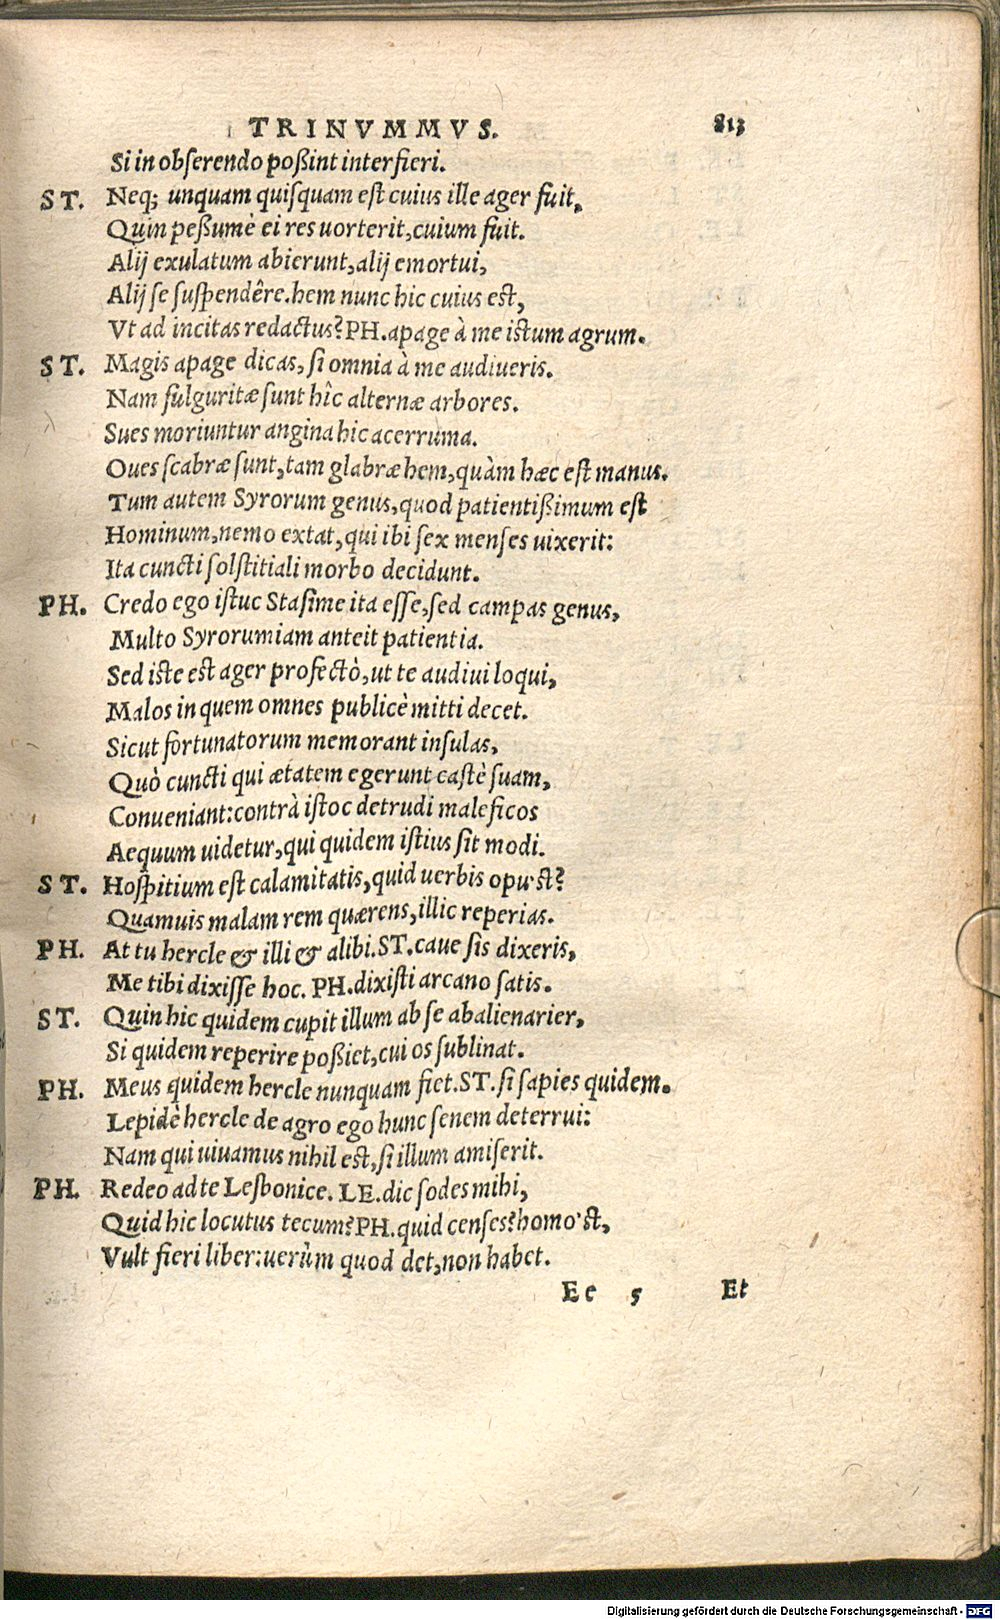 TRINVMMVS. 813
Si in obſerendo poßint interfieri.
ST. Neq; unquam quiſquam eſt cuius ille ager fuit,
Quin peßumè ei res uorterit, cuium fuit.
Alij exulatum abierunt, alij emortui,
Alij ſe ſuſpendêre. hem nunc hic cuius est,
Vt ad incitas redactus? PH. apage à me istum agrum.
ST. Magis apage dicas, ſi omnia à me audiueris.
Nam fulguritæ ſunt hîc alternæ arbores.
Sues moriuntur angina hic acerruma.
Oues ſcabræ ſunt, tam glabræ hem, quàm hæc est manus.
Tum autem Syrorum genus, quod patientißimum eſt
Hominum, nemo extat, qui ibi ſex menſes uixerit:
Ita cuncti ſolſtitiali morbo decidunt.
PH. Credo ego iſtuc Staſime ita eſſe, ſed campas genus,
Multo Syrorum iam anteit patientia.
Sed iste est ager profectò, ut te audiui loqui,
Malos in quem omnes publicè mitti decet.
Sicut fortunatorum memorant inſulas,
Quò cuncti qui ætatem egerunt caſtè ſuam,
Conueniant: contrà iſtoc detrudi maleficos
Aequum uidetur, qui quidem iſtius ſit modi.
ST. Hoſpitium est calamitatis, quid uerbis opu'st?
Quamuis malam rem quærens, illic reperias.
PH. At tu hercle & illi & alibi. ST. caue ſis dixeris,
Me tibi dixiſſe hoc. PH. dixiſti arcano ſatis.
ST. Quin hic quidem cupit illum ab ſe abalienarier,
Si quidem reperire poßiet, cui os ſublinat.
PH. Meus quidem hercle nunquam fiet. ST. ſi ſapies quidem.
Lepidè hercle de agro ego hunc ſenem deterrui:
Nam qui uiuamus nihil est, ſi illum amiſerit.
PH. Redeo ad te Lesbonice. LE. dic ſodes mihi,
Quid hic locutus tecum? PH. quid cenſes? homo'st,
Vult fieri liber: uerùm quod det, non habet.
Ee 5 Et
Digitalisierung gefördert durch die Deutsche Forschungsgemeinschaft - DFG